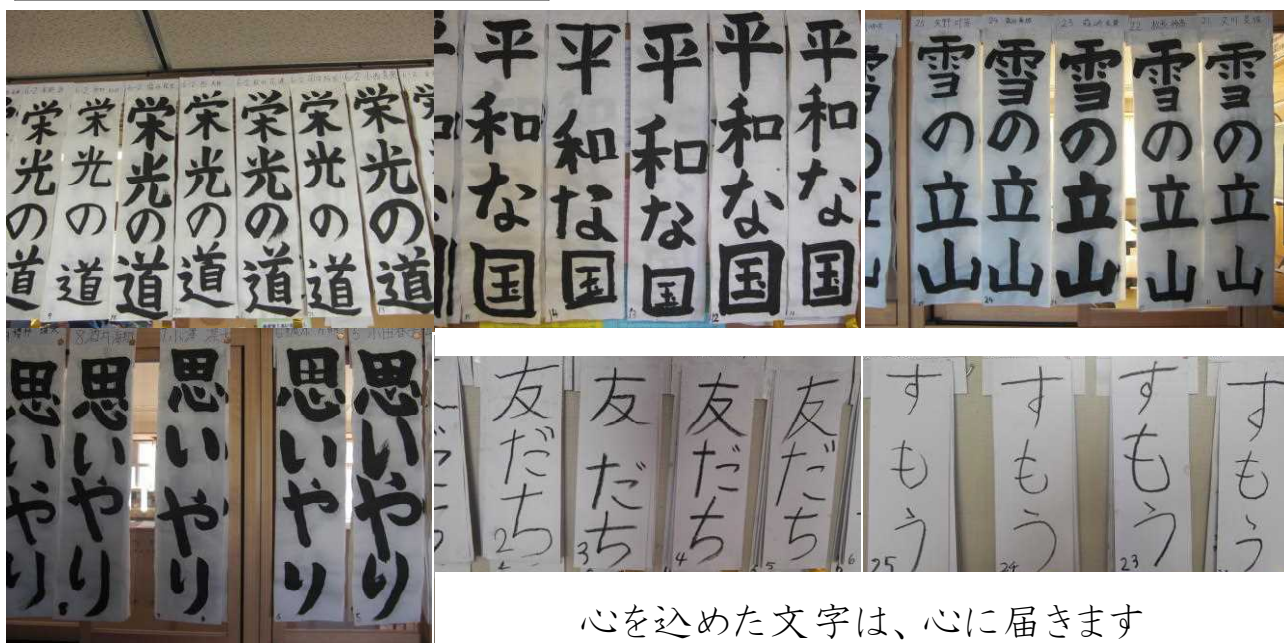 栄光の道
栄光の道
栄光の道
栄光の道
栄光の道
栄光の道
栄光の道
平和な国
平和な国
平和な国
平和な国
平和な国
雪の立山
雪の立山
雪の立山
雪の立山
雪の立山
思いやり
思いやり
思いやり
思いやり
思いやり
友だち
2
友だち
3
友だち
4
友だち
5
すもう
25
すもう
24
すもう
23
すもう
心を込めた文字は、心に届きます